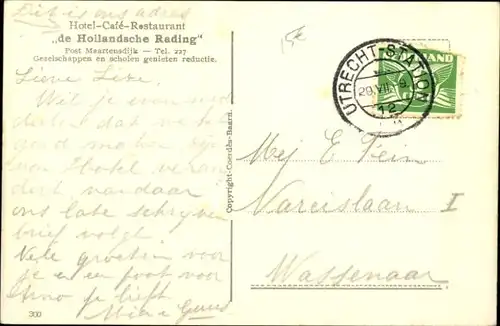 Dit is ons adres
Hotel-Café-Restaurant
„de Hollandsche Rading"
Post Maartensdijk — Tel. 227
Gezelschappen en scholen genieten reductie.
Lieve Lize.
Wil je even
dat we
goed
van Hotel veran
dert vandaar
ons late schrijven
brief volgt.
Vele groeten voor
je en een poot voor
Arno je lieft.
Mia & Guus
300
Copyright-Coerdès-Baarn.
5c
UTRECHT-STATION
29.VII
12
NEDERLAND
Mej E Fein
Narcislaan I
Wassenaar